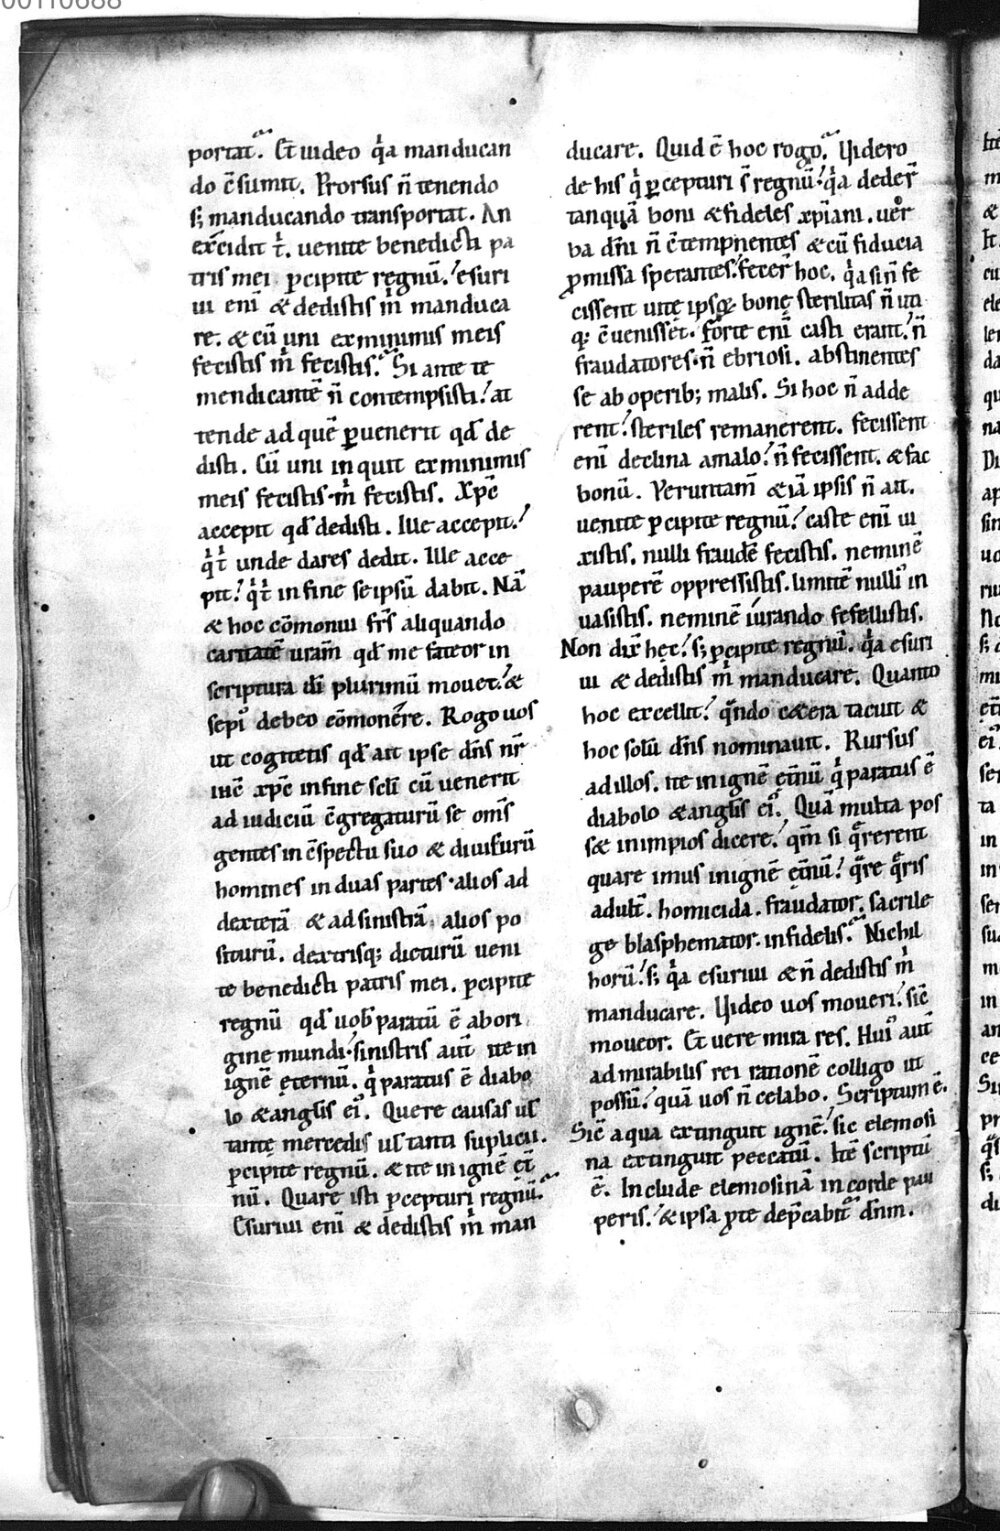 00110688
portat. Et uideo q̇a manducan
do c̄sumit. Prorsus n̄ tenendo
s; manducando transportat. An
excidit t̄. uenite benedicti pa
tris mei ꝑcipite regnū. esuri
ui enī & dedistis m̄ manduca
re. & cū uni ex minimis meis
fecistis m̄ fecistis. Si ante te
mendicantē n̄ contempsisti. at
tende ad quē ꝑuenerit qd̄ de
disti. Cū uni inquit ex minimis
meis fecistis. m̄ fecistis. Xp̄c
accepit qd̄ dedisti. Ille accepit.
q̇ t̄ unde dares dedit. Ille acce
pit. q̇ t̄ in fine seipsū dabit. Nā
& hoc cōmonui fr̄s aliquando
caritatē uram̄ qd̄ me fateor in
scriptura dī plurimū mouet. &
sepi᾿ debeo cōmonere. Rogo uos
ut cogitetis qd̄ ait ipse dn̄s nr̄
ihē xp̄c in fine sclī cū uenerit
ad iudiciū c̄gregaturū se om̄s
gentes in c̄spectu suo & diuisurū
homines in duas partes. alios ad
dexterā & ad sinistrā. alios po
siturū. dextrisq; dicturū ueni
te benedicti patris mei. ꝑcipite
regnū qd̄ uob̄ paratū ē abori
gine mundi. sinistris aut̄ ite in
ignē ęternū. q̇ paratus ē diabo
lo & angl̄is ei᾿. Quere causas ul̄
tantę mercedis ul̄ tanti suplicii.
ꝑcipite regnū. & ite in ignē et̄
nū. Quare isti ꝑcepturi regnū.
Esuriui enī & dedistis m̄ man
ducare. Quid ē hoc rogo. Uidero
de his q̇ ꝑcepturi s̄ regnū. q̇a deder̄
tanquā boni & fideles xp̄iani. uer
ba dn̄i n̄ c̄tempnentes & cū fiducia
ꝓmissa sperantes. fecer̄ hoc. q̇a si n̄ fe
cissent uitę ipsoꝝ bonę sterilitas n̄ uti
q; c̄uenisset. Forte enī casti erant. n̄
fraudatores. n̄ ebriosi. abstinentes
se ab operib; malis. Si hoc n̄ adde
rent. steriles remanerent. fecissent
enī declina amalo. n̄ fecissent. & fac
bonū. Veruntam̄ & iā ipsis n̄ ait.
uenite ꝑcipite regnū. caste enī ui
xistis. nulli fraudē fecistis. neminē
pauperē oppressistis. limitē nulli᾿ in
uasistis. neminē iurando fefellistis.
Non dix̄ hęc. s; ꝑcipite regnū. q̇a esuri
ui & dedistis m̄ manducare. Quanto
hoc excellit. q̄ndo cetera tacuit &
hoc solū dn̄s nominauit. Rursus
ad illos. ite in ignē et̄nū q̇ paratus ē
diabolo & angl̄is ei᾿. Quā multa pos
set in impios dicere. qm̄ si q̄rerent
quare imus in ignē et̄nū. q̄re q̄ris
adult̄. homicida. fraudator. sacrile
ge blasphemator. infidelis. Nichil
horū. s; q̇a esuriui & n̄ dedistis m̄
manducare. Uideo uos moueri. sic̄
moueor. Et uere mira res. Hui᾿ aut̄
admirabilis rei rationē colligo ut
possū. quā uos n̄ celabo. Scriptum ē.
Sic̄ aqua extinguit ignē. sic elemosi
na extinguit peccatū. Itē scriptū
ē. Include elemosinā in corde pau
peris. & ipsa ꝓ te dep̄cabit᾿ dn̄m.